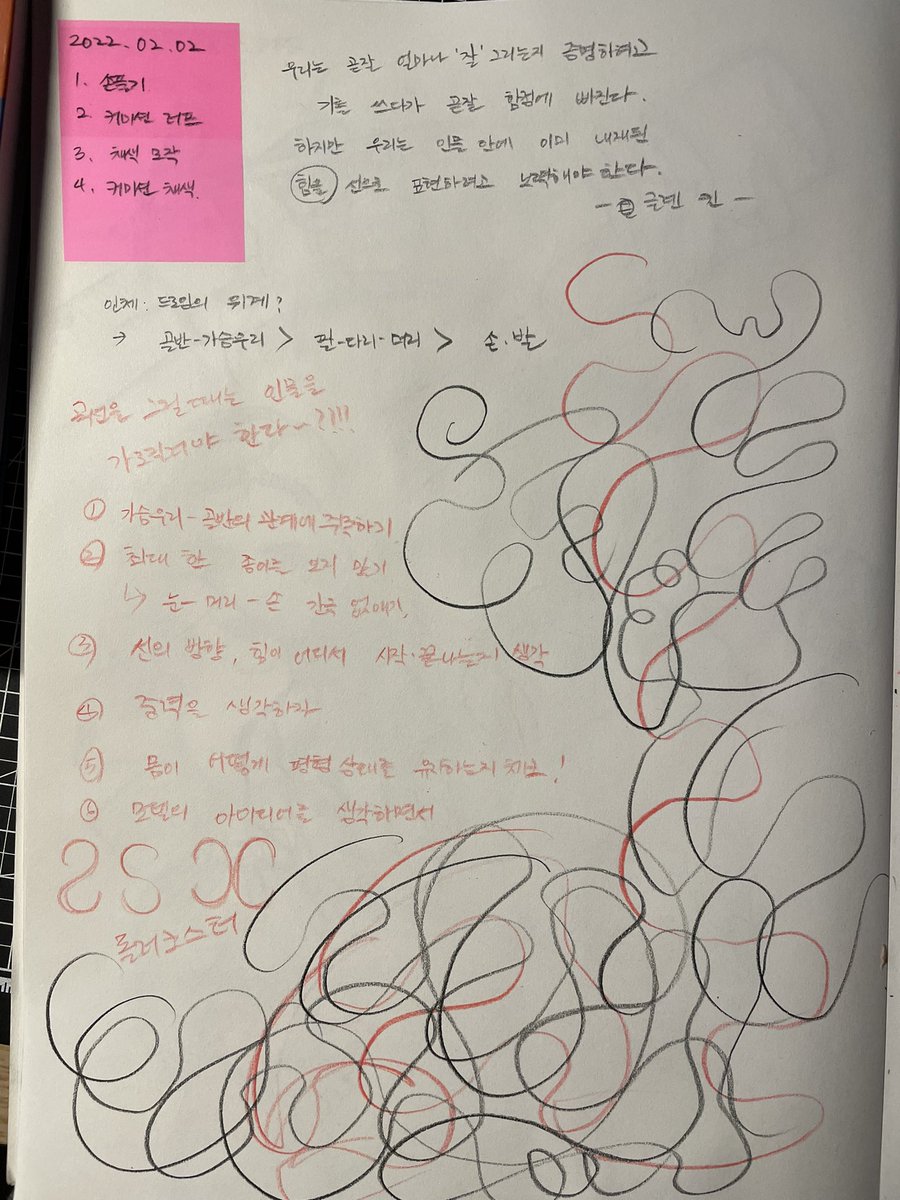 2022.02.02
1. 손풀기
2. 커미션 러프
3. 채색 모작
4. 커미션 채색.
우리는 곧잘 얼마나 '잘' 그리는지 증명하려고
기를 쓰다가 곧잘 함정에 빠진다.
하지만 우리는 인물 안에 이미 내재된
힘을 선으로 표현하려고 노력해야 한다.
- 글렌 킨 -
인체: 드로잉의 위계?
→ 골반-가슴우리 > 팔-다리-머리 > 손.발
그릴 때는 인물을
가로질러야 한다~?!!!
① 가슴우리-골반의 관계에 주목하기
② 최대한 종이를 보지 않기
↳ 눈-머리-손 간극 없애기,
③ 선의 방향, 힘이 어디서 시작·끝나는지 생각
④ 중력을 생각하자
⑤ 몸이 어떻게 평형상태를 유지하는지 체크!
⑥ 모델의 아이디어를 생각하면서
롤러코스터